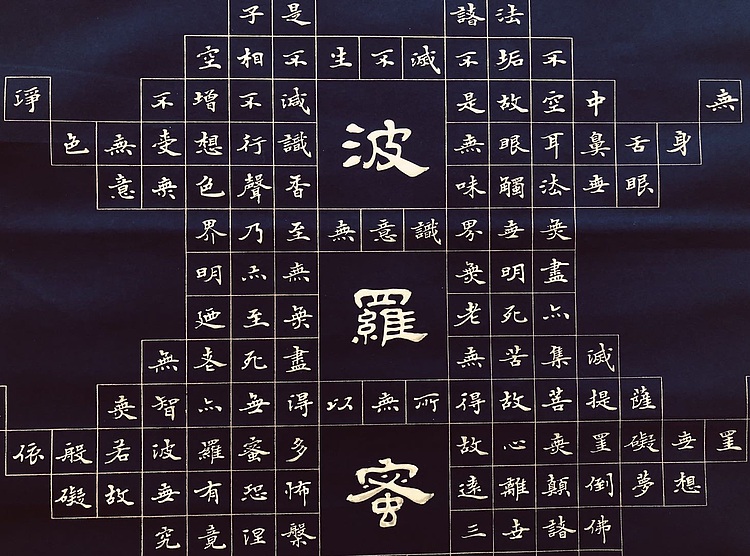 子是諸法
空相不生不滅不垢不
淨不增不減是故空中無
色無受想行識無眼耳鼻舌身
意無色聲香味觸法無眼
界乃至無意識界無無
明亦無無明盡
廼至無老死亦
無老死盡無苦集滅
無智亦無得以無所得故菩提薩
依般若波羅蜜多故心無罣礙無罣
礙故無有恐怖遠離顛倒夢想
究竟涅槃三世諸佛
波
羅
蜜